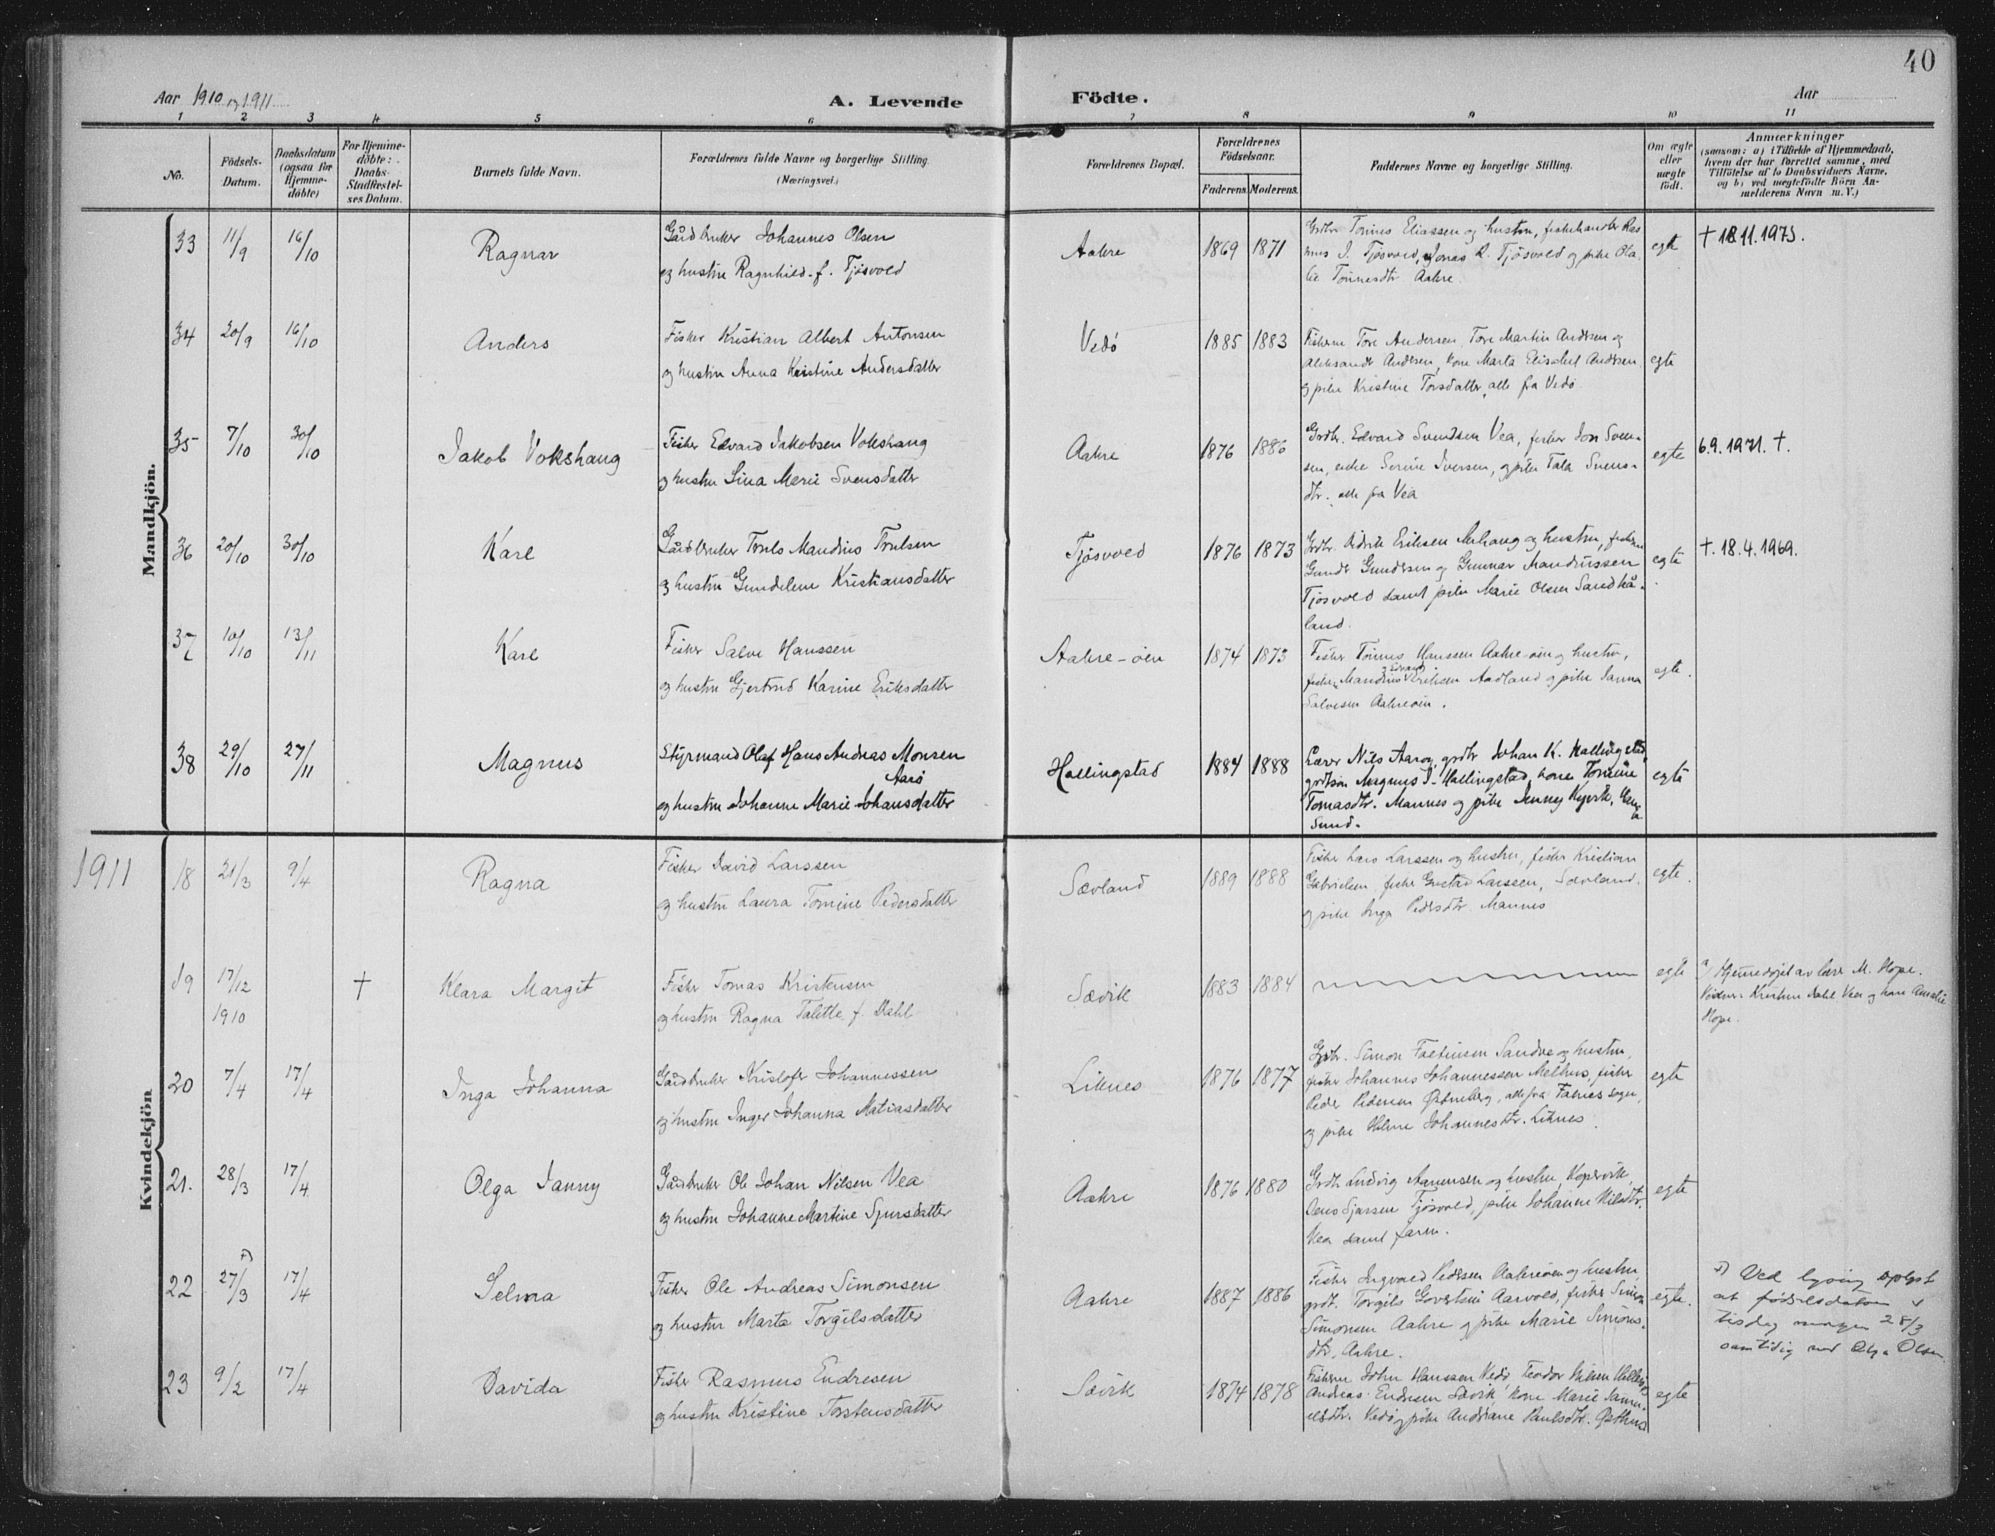 40
Aar 1910 og 1911
A. Levende Födte.
Aar
1 2 3 4 5 6 7 8 9 10 11
No.
Födsels-
Datum.
Daabsdatum
(ogsaa for
Hjemme-
döbte)
For Hjemme-
döbte:
Daabs-
Stadfæstel-
ses Datum.
Barnets fulde Navn.
Forældrenes fulde Navne og borgerlige Stilling.
(Næringsvei.)
Forældrenes Bopæl.
Forældrenes
Födselsaar.
Faderens. Moderens.
Faddernes Navne og borgerlige Stilling.
Om ægte
eller
uægte
födt.
Anmærkninger
(saasom: a) i Tilfælde af Hjemmedaab,
hvem der har forrettet samme, med
Tilföielse af to Daabsvidners Navne,
og b) ved uægtefödte Börn An-
melderens Navn m. V.)
Mandkjön.
33 11/9 16/10 Ragnar
Gårdbruker Johannes Olsen
og hustru Ragnhild f. Tjøsvold
Aakre 1869 1871
Grdbr Tønnes Eliassen og hustru, fiskehandler Ras
mus J. Tjøsvold, Jonas R. Tjøsvold og pike Ola
Tønnesdtr Aakre.
egte
† 18.11.1975.
34 20/9 16/10 Anders
Fisker Kristian Albert Antonsen
og hustru Anna Kristine Andersdatter
Vedø 1885 1883
Fiskerne Tore Andersen, Tore Martin Andersen og
Aleksander Andersen, kone Marta Elisabet Andersen
og pike Kristine Torsdatter, alle fra Vedø.
egte
35 7/10 30/10 Jakob Vokshaug
Fisker Edvard Jakobsen Vokshaug
og hustru Lina Marie Svensdatter
Aakre 1876 1886
Grdbr. Edvard Svendsen Vea, fisker Jon Sven-
sen, enke Serine Iversen, og pike Tala Svens-
dtr. alle fra Vea
egte
6.9.1971. †.
36 20/10 30/10 Karl
Gårdbruker Truls Mandius Trulsen
og hustru Gundeline Kristiansdatter
Tjøsvold 1876 1873
Grdbr. Didrik Eriksen Aahaug og hustru, fiskerne
Gunder Gundersen og Gunnar Mandiussen
Tjøsvold samt pike Marie Olsen Sandhå-
land.
egte
†. 18.4.1969.
37 10/10 13/11 Karl
Fisker Salve Hanssen
og hustru Gjertrud Karine Eriksdatter
Aakre-øen 1874 1873
Fisker Tønnes Hanssen Aakre-øen og hustru,
Edvard
fisker Mandius Eriksen Aadland og pike Janna
Salvesen Aakreøen.
egte.
38 29/10 27/11 Magnus
Styrmand Olaf Hans Andreas Monsen
Aarø
og hustru Johanne Marie Johansdatter
Hallingstad 1884 1888
Lærer Nils Aarø, grdbr Johan K. Hallingstad,
grdbsøn Magnus J. Hallingstad, kone Tomine
Tomasdtr. Mannes og pike Jenny
sund.
egte
1911
Kvindekjön
18 21/3 9/4 Ragna
Fisker David Larssen
og hustru Laura Tomine Pedersdatter
Sævland 1889 1888
Fisker Lars Larssen og hustru, fisker Kristian
Gabrielsen, fisker Gustav Larssen, Sævland.
og pike Inga Pedersdtr. Mannes
egte.
19 17/12 1910 † Klara Margit
Fisker Tomas Kristensen
og hustru Ragna Talette f. Dahl
Sævik 1883 1884
egte
*) Hjemmedøpt av lærer M. Hope.
Vidner: Kristine Dahl, Vea og kone Amalie
Hope.
20 7/4 17/4 Inga Johanna
Gårdbruker Kristofer Johannessen
og hustru Inger Johanna Matiasdatter
Liknes 1876 1877
Grdbr. Simon Faltinsen Sandve og hustru,
fisker Johannes Johannessen Melhus, fisker
Peder Pedersen Østrenberg, alle fra Falnes sogn,
og pike Helene Johannesdtr. Liknes.
egte
21. 28/3 17/4 Olga Janny
Gårdbruker Ole Johan Nilsen Vea
og hustru Johanne Martine Sjursdatter
Aakre 1876 1880
Grdbr. Ludvig Aanensen og hustru, Kopervik,
Aanes Sjursen Tjøsvold, pike Johanne Nilsdtr.
Vea samt faren.
egte
22 27/3 17/4 Selma
Fisker Ole Andreas Simonsen
og hustru Marta Torgilsdatter
Aakre 1887 1886
Fisker Ingvald Pedersen Aakreøen og hustru
grdbr. Torgils Govertsen Aarvold, fisker Simon
Simonsen Aakre og pike Marie Simons-
dtr. Aakre.
egte.
*) Ved lysing oplyst
at fødselsdatoen er
tisdag morgen 28/3
samtidig med Olga Olsen
23 9/2 17/4 Davida
Fisker Rasmus Endresen
og hustru Kristine Torstensdatter
Sævik 1874 1878
Fiskerne John Hanssen Vedø, Teodor Nilsen
Andreas Endresen Sævik, kone Marie Samu-
elsdtr. Vedø og pike Andriane Paulsdtr. Østhus
egte